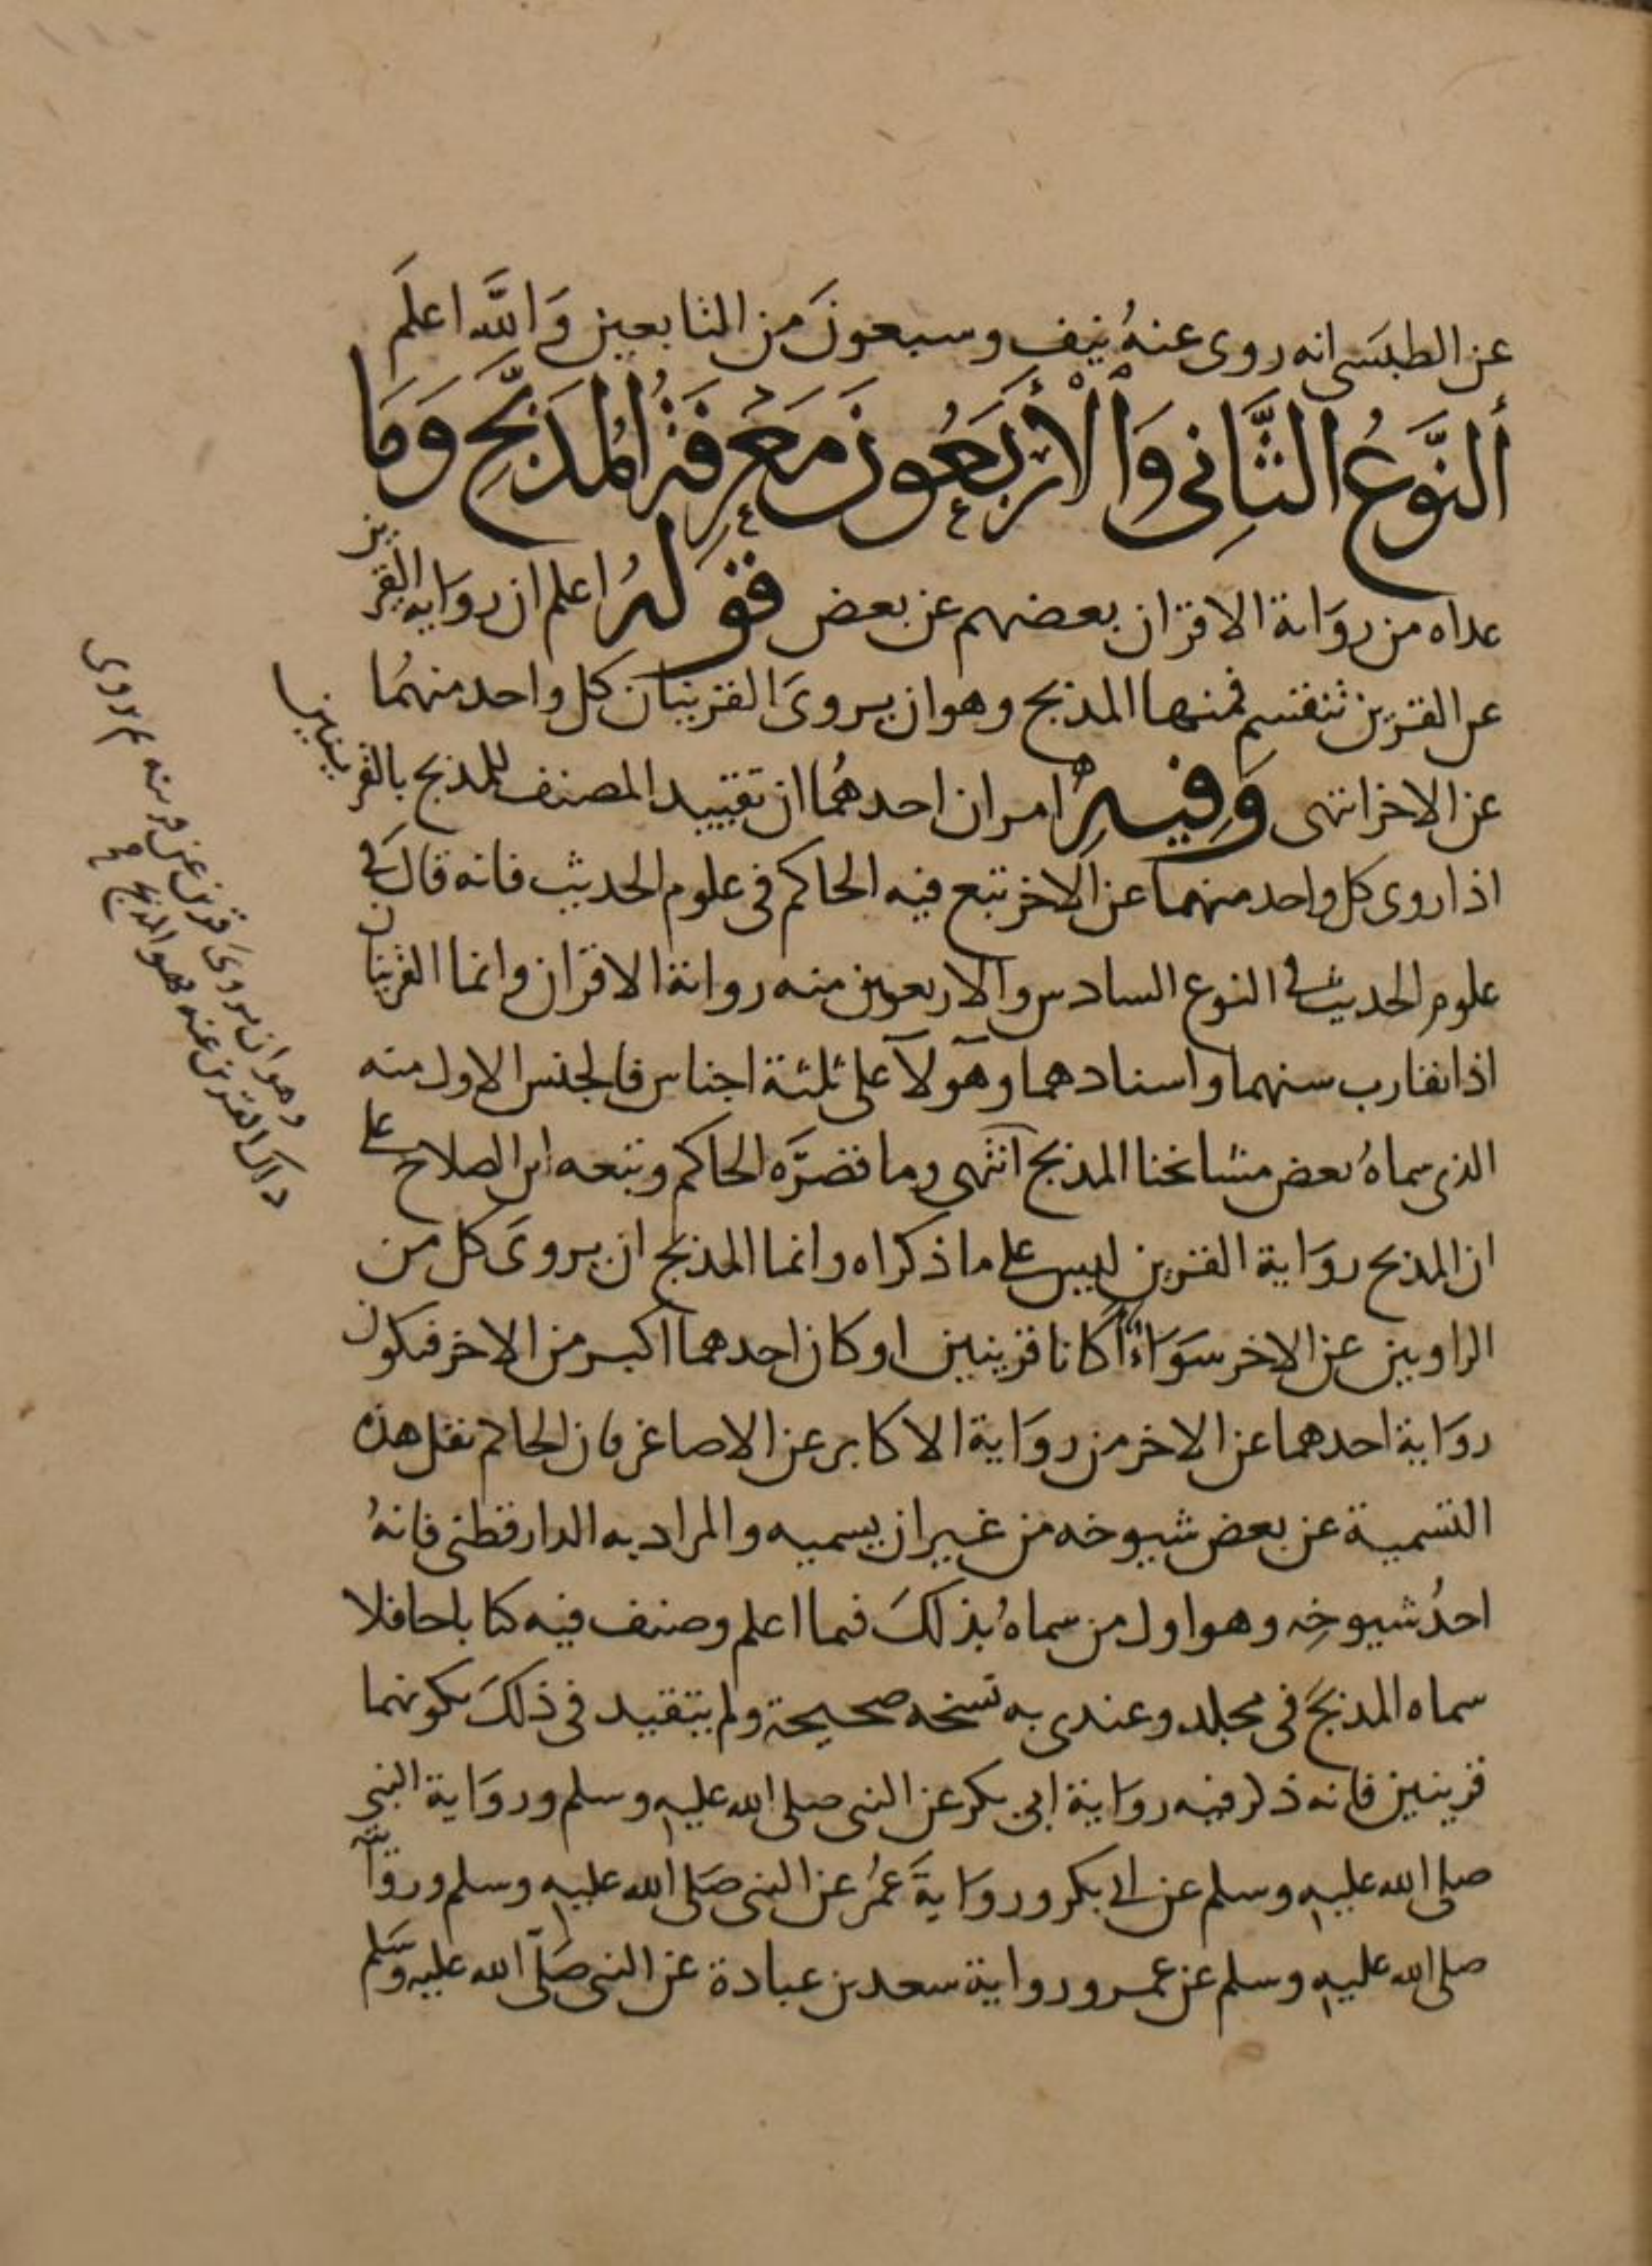 عن الطبسى انه روى عنهُ نيف وسبعونَ من التابعين وَاللَّه اعلَم
ألنَّوَعُ الثَّانِى وَالْأَرْبَعُونَ مَعْرِفَةُ الْمُدَبَّجِ وَمَا
عداه من روَاية الاقران بعضهم عن بعض قَولهُ اعلم ان روَاية القرين
عن القرين تنقسم فمنها المدبج وهو ان يروىَ القرينان كل واحد منهمُا
عن الاخر انتهى وَفِيهِ امران احدهمُا ان تقييد المصنف للمدبج بالقرينين
اذا روى كل واحد منهما عن الاخر تبع فيه الحاكم فى علوم الحديث فانه قال فى
علوم الحديث فى النوع السادس والاربعين منه رواية الاقران وانما القرينان
اذا تقارب سنهما واسنادهما وهولآ على ثلثة اجناس فالجنس الاول منه
الذى سماهُ بعض مشايخنا المدبج انتهى وما قصرَّه الحاكم وتبعه ابن الصلاح على
ان المدبج روَاية القرين ليس على ما ذكراه وانما المدبج ان يروىَ كل من
الراويين عن الاخر سَوَاءٌ أكانا قرينين او كان احدهما اكبر من الاخر فتكون
روَاية احدهما عن الاخر من روَاية الاكابر عن الاصاغر فان الحاكم نقل هذه
التسمية عن بعض شيوخه من غير ان يسميه والمراد به الدارقطنى فانهُ
احدُ شيوخِه وهو اول من سماهُ بذلكَ فيما اعلم وصنف فيه كتابا حافلا
سماه المدبجَ فى مجلد وعندى به نسخه صحيحة ولم يتقيد فى ذلكَ بكونهما
قرينين فانه ذكر فيه روَاية ابى بكر عن النبى صلى الله عليه وسلم وروَاية النبى
صلى الله عليه وسلم عن ابى بكر وروَايةَ عمُر عن النبى صَلى الله عليه وسلم وروايته
صلى الله عليه وسلم عن عمر ورواية سعد بن عبادة عن النبى صَلّى الله عليه وسَلم
وهو ان يروىَ قرين عن قرينه ثم يروى
ذاك القرين عنه فهو المدبج